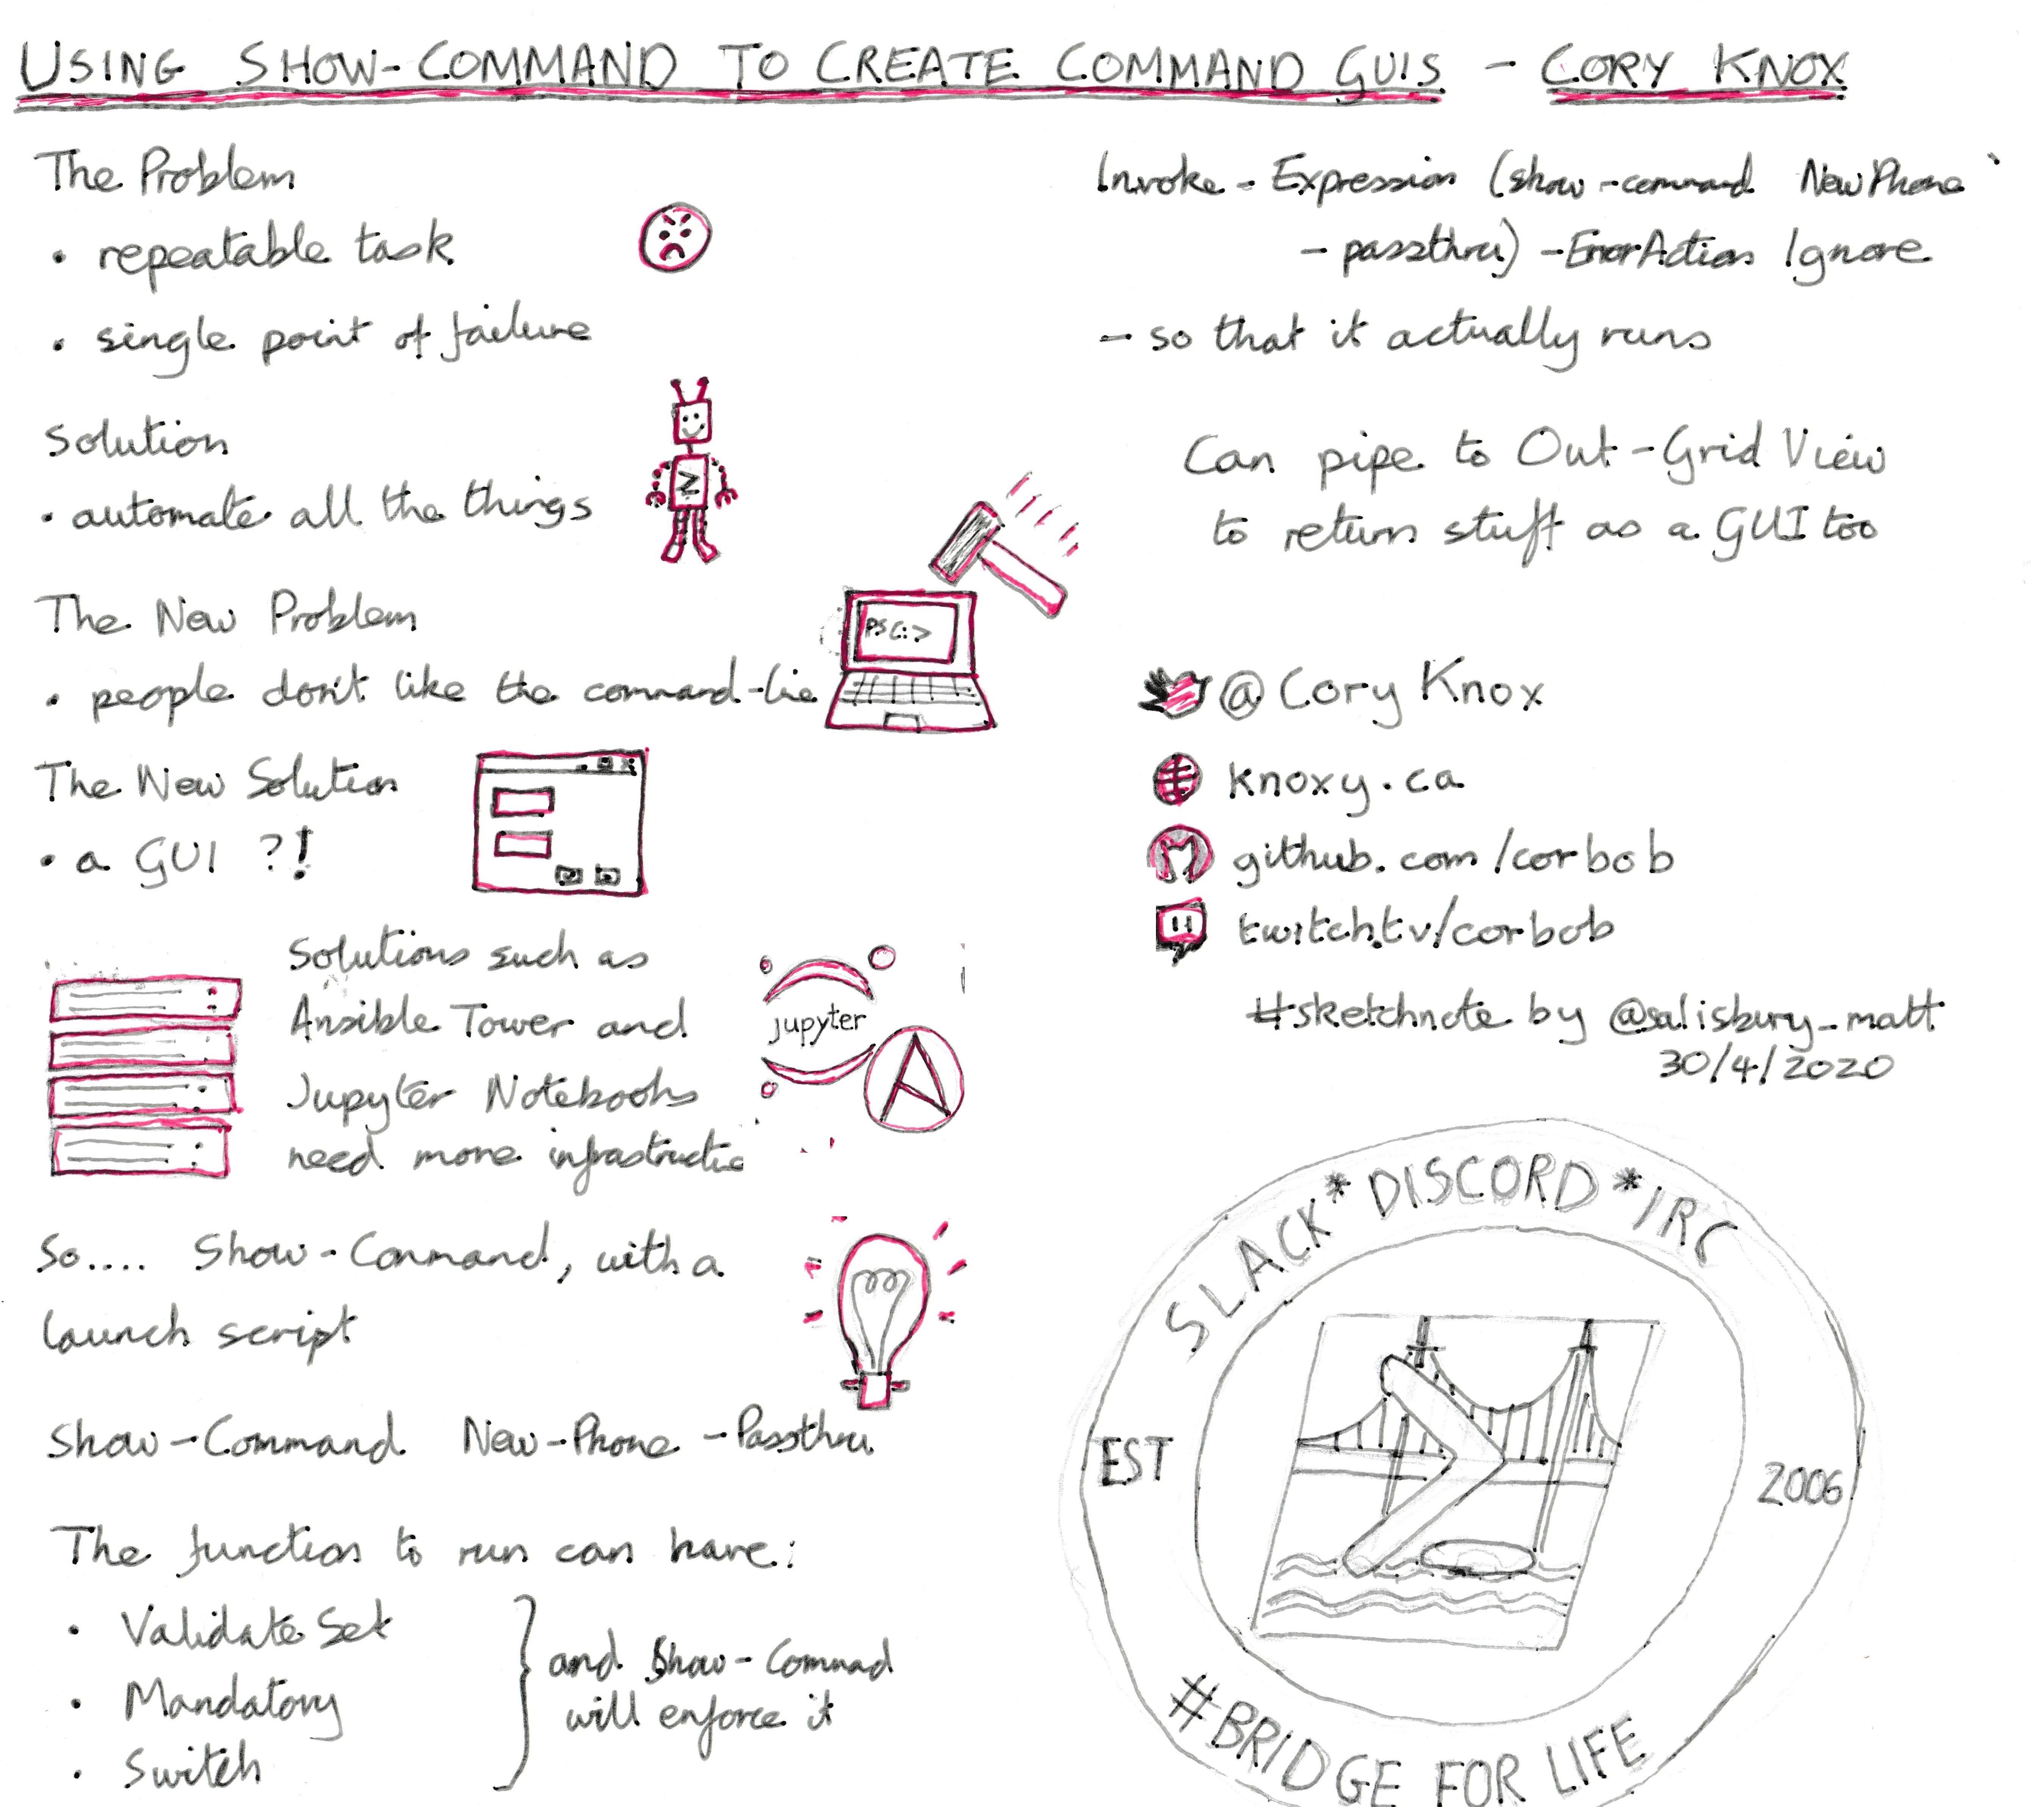 USING SHOW-COMMAND TO CREATE COMMAND GUIS - CORY KNOX
The Problem
• repeatable task
• single point of failure
Solution
• automate all the things
The New Problem
• people don't like the command-lie
PS C:>
The New Solution
• a GUI ?!
Solutions such as
Ansible Tower and
Jupyter Notebooks
need more infrastructure
jupyter
A
So.... Show-Command, with a
launch script
Show-Command New-Phone -Passthru
The function to run can have:
• Validate Set
• Mandatory
• Switch
and Show-Commad
will enforce it
Invoke-Expression (show-command NewPhone `
-passthru) -ErrorAction Ignore
- so that it actually runs
Can pipe to Out-Grid View
to return stuff as a GUI too
@Cory Knox
knoxy.ca
github.com/corbob
twitch.tv/corbob
#sketchnote by @salisbury_matt
30/4/2020
SLACK*DISCORD*IRC
EST
2006
#BRIDGE FOR LIFE